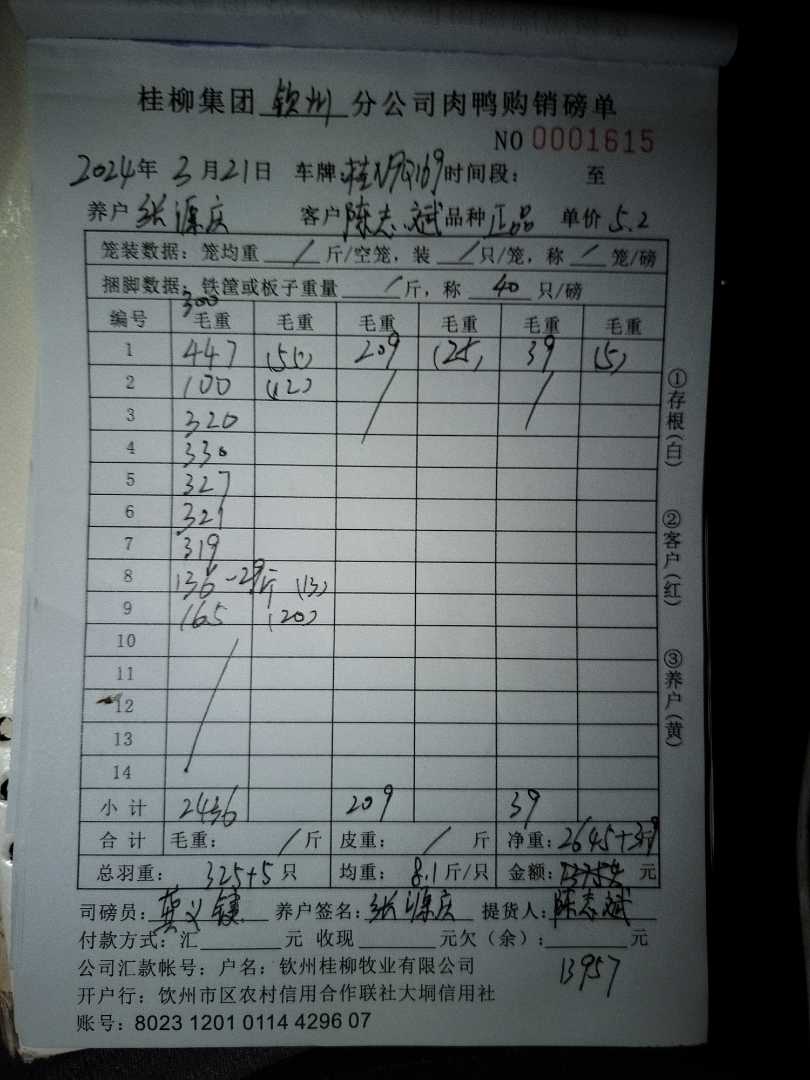 桂柳集团 钦州 分公司肉鸭购销磅单
NO 0001615
2024年 3月21日 车牌:桂N9Q169 时间段: 至
养户 张源庆 客户 陈志斌 品种 正品 单价 5.2
笼装数据: 笼均重 / 斤/空笼, 装 / 只/笼, 称 / 笼/磅
捆脚数据: 铁筐或板子重量 / 斤, 称 40 只/磅
300
编号 毛重 毛重 毛重 毛重 毛重 毛重
1 447 (55) 209 (25) 39 (5)
2 100 (12) / /
3 320
4 330
5 327
6 321
7 319
8 136 -29斤 (13)
9 165 (20)
10 /
11
12
13
14
小计 2436 209 39
合计 毛重: / 斤 皮重: / 斤 净重: 2645+39
总羽重: 325+5 只 均重: 8.1 斤/只 金额: 13754 元
司磅员: 养户签名: 张源庆 提货人: 陈志斌
付款方式: 汇 元 收现 元欠(余): 元
13957
公司汇款帐号: 户名: 钦州桂柳牧业有限公司
开户行: 钦州市区农村信用合作联社大垌信用社
账号: 8023 1201 0114 4296 07
①存根(白)
②客户(红)
③养户(黄)